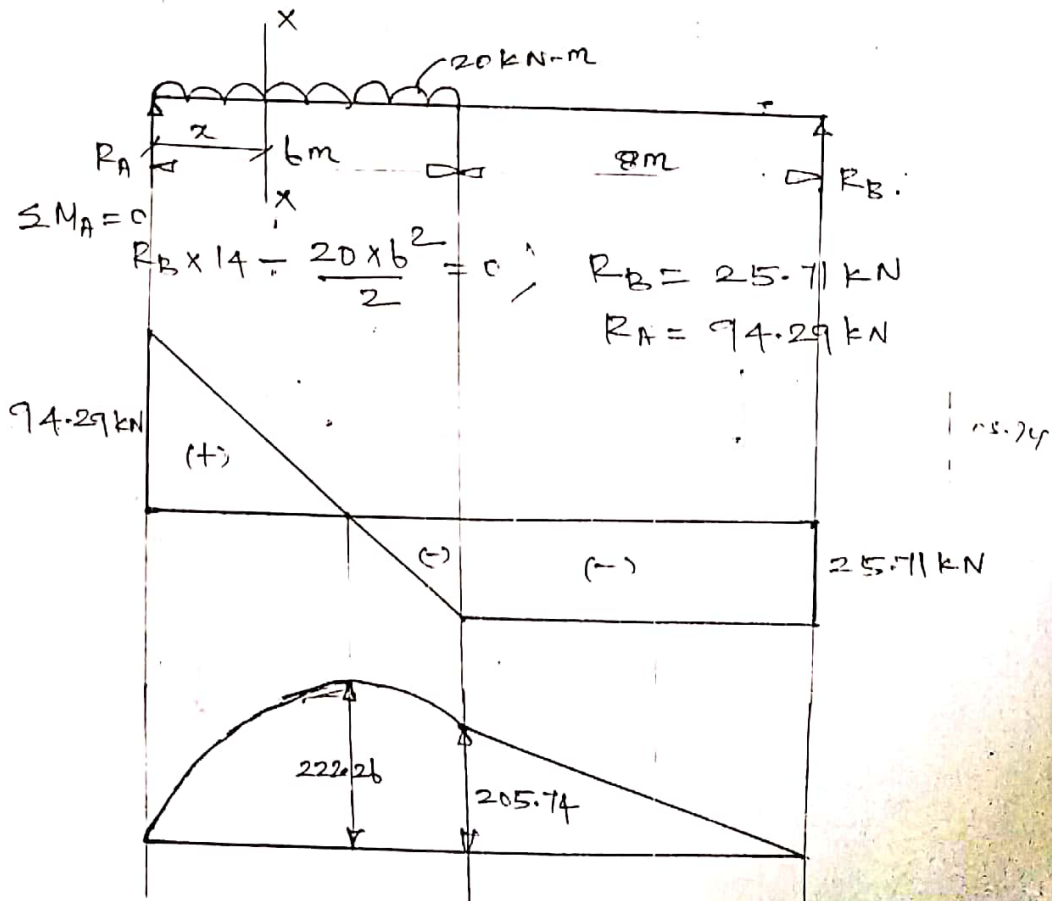 x
20 kN-m
x
6m
8m
RA
RB.
x
ΣMA = 0
RB x 14 - 20 x 6² / 2 = 0 ; RB = 25.71 kN
RA = 94.29 kN
94.29 kN
(+)
(-)
(-)
25.71 kN
222.26
205.74